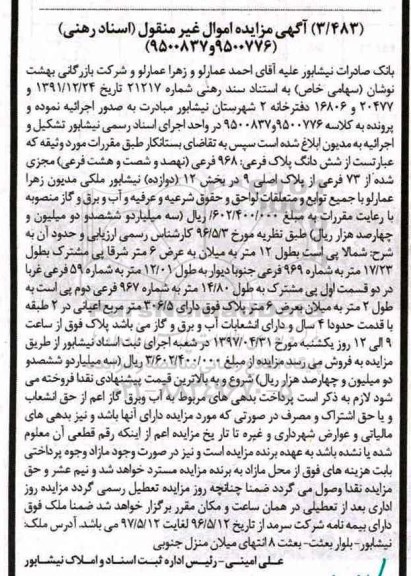 (۳/۴۸۳) آگهی مزایده اموال غیر منقول (اسناد رهنی)
(۹۵۰۰۷۷۶و۹۵۰۰۸۳۷)
بانک صادرات نیشابور علیه آقای احمد عمارلو و زهرا عمارلو و شرکت بازرگانی بهشت
نوشان (سهامی خاص) به استناد سند رهنی شماره ۲۱۲۱۷ تاریخ ۱۳۹۱/۱۲/۲۴ و
۲۰۴۷۷ و ۱۶۸۰۶ دفترخانه ۲ شهرستان نیشابور مبادرت به صدور اجرائیه نموده و
پرونده به کلاسه ۹۵۰۰۷۷۶و۹۵۰۰۸۳۷ در واحد اجرای اسناد رسمی نیشابور تشکیل و
اجرائیه به مدیون ابلاغ شده است سپس به تقاضای بستانکار طبق مقررات مورد وثیقه که
عبارتست از شش دانگ پلاک فرعی: ۹۶۸ فرعی (نهصد و شصت و هشت فرعی) مجزی
شده از ۷۳ فرعی از پلاک اصلی ۹ در بخش ۱۲ (دوازده) نیشابور ملکی مدیون زهرا
عمارلو با جمیع توابع و متعلقات لواحق و حقوق شرعیه و عرفیه و آب و برق و گاز منصوبه
با رعایت مقررات به مبلغ ۳/۶۰۲/۴۰۰/۰۰۰ ریال (سه میلیاردو ششصدو دو میلیون و
چهارصد هزار ریال) طبق نظریه مورخ ۹۶/۵/۳ کارشناس رسمی ارزیابی و حدود آن به
شرح: شمالا پی است بطول ۱۲ متر به میلان به عرض ۶ متر شرقا پی مشترک بطول
۱۷/۲۳ متر به شماره ۹۶۹ فرعی جنوبا دیوار به طول ۱۲/۰۱ متر به شماره ۵۹ فرعی غربا
در دو قسمت اول پی مشترک به طول ۱۴/۸۰ متر به شماره ۹۶۷ فرعی دوم پی است به
طول ۲ متر به میلان بعرض ۶ متر پلاک فوق دارای ۳۰۶/۵ متر مربع اعیانی در ۲ طبقه
با قدمت حدودا ۴ سال و دارای انشعابات آب و برق و گاز می باشد پلاک فوق از ساعت
۹ الی ۱۲ روز یکشنبه مورخ ۱۳۹۷/۰۴/۳۱ در شعبه اجرای ثبت اسناد نیشابور از طریق
مزایده به فروش می رسد مزایده از مبلغ ۳/۶۰۲/۴۰۰/۰۰۰ ریال (سه میلیاردو ششصدو
دو میلیون و چهارصد هزار ریال) شروع و به بالاترین قیمت پیشنهادی نقدا فروخته می
شود لازم به ذکر است پرداخت بدهی های مربوط به آب وبرق گاز اعم از حق انشعاب
و یا حق اشتراک و مصرف در صورتی که مورد مزایده دارای آنها باشد و نیز بدهی های
مالیاتی و عوارض شهرداری و غیره تا تاریخ مزایده اعم از اینکه رقم قطعی آن معلوم
شده یا نشده باشد به عهده برنده مزایده است و نیز در صورت وجود مازاد وجوه پرداختی
بابت هزینه های فوق از محل مازاد به برنده مزایده مسترد خواهد شد و نیم عشر و حق
مزایده نقدا وصول می گردد ضمنا چنانچه روز مزایده تعطیل رسمی گردد مزایده روز
اداری بعد از تعطیلی در همان ساعت و مکان مقرر برگزار خواهد شد ضمنا ملک فوق
دارای بیمه نامه شرکت سرمد از تاریخ ۹۶/۵/۱۲ لغایت ۹۷/۵/۱۲ می باشد. آدرس ملک:
نیشابور- بلوار بعثت- بعثت ۸ انتهای میلان منزل جنوبی
علی امینی - رئیس اداره ثبت اسناد و املاک نیشابور